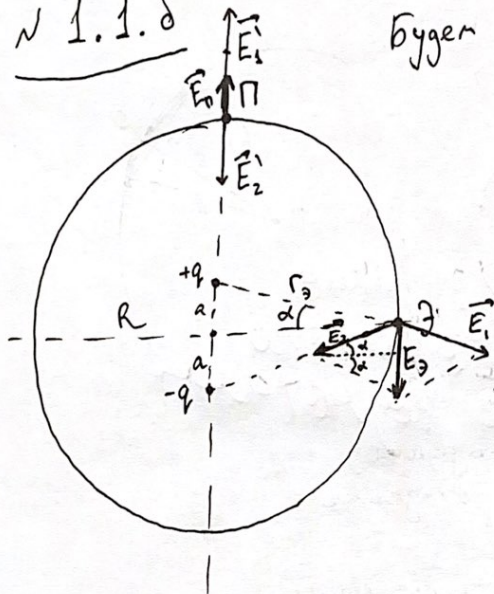 N 1.1.8
Будем
E⃗'₁
E⃗п П
E⃗'₂
+q
rэ
a
α
R
Э
E⃗₁
E⃗₂
α
α
E⃗э
a
-q